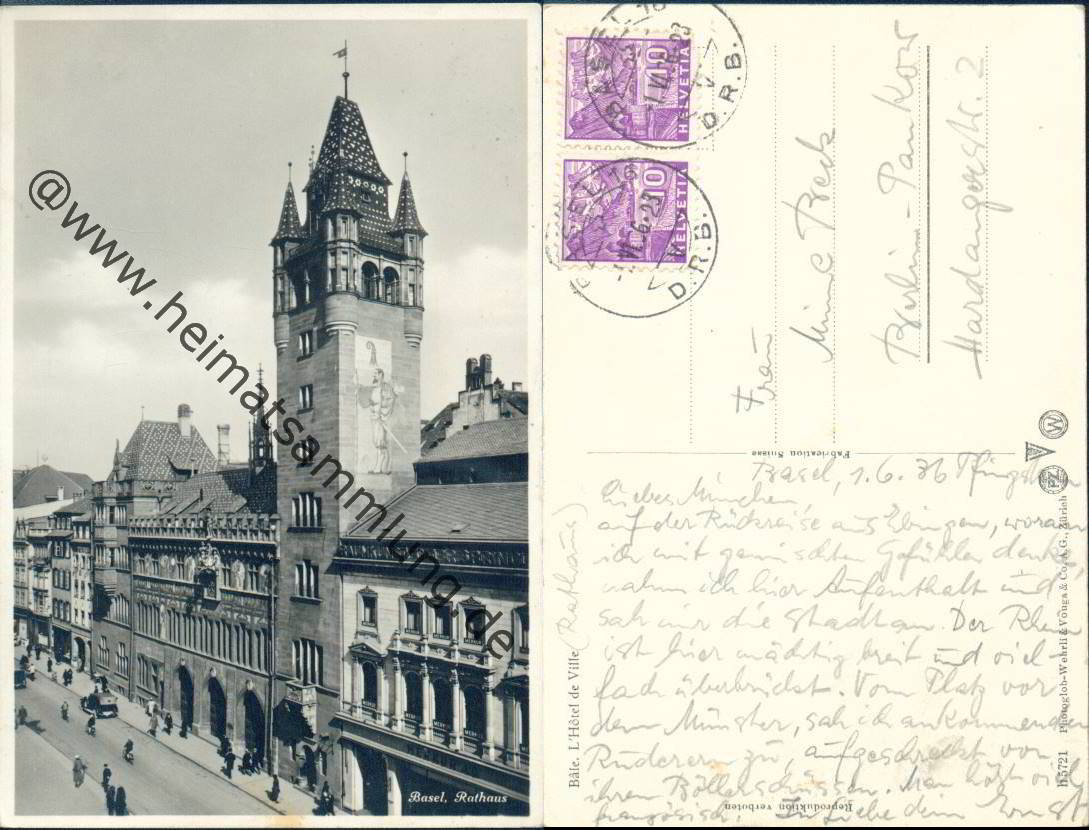 @www.heimatsammlung.de
Basel, Rathaus
HELVETIA
10
HELVETIA
10
D.R.B.
D.R.B.
Frau
Berlin-Pankow
Hardangerstr. 2
Fabrication Suisse
Basel, 1.6.36
Liebes Minchen
auf der Rückreise aus
ich mit gemischten Gefühlen denke
nahm ich hier Aufenthalt und
sah mir die Stadt an. Der Rhein
ist hier mächtig breit und viel-
fach überbrückt. Vom Platz vor
dem Münster, sah ich ankommenden
Ruderern zu, aufgeschreckt von
ihren Böllerschüssen. Man hört viel
französisch.
Bâle. L'Hôtel de Ville (Rathaus)
Reproduktion verboten
h 5721 Photoglob-Wehrli & Vouga & Co. A.G., Zürich
PZ
W